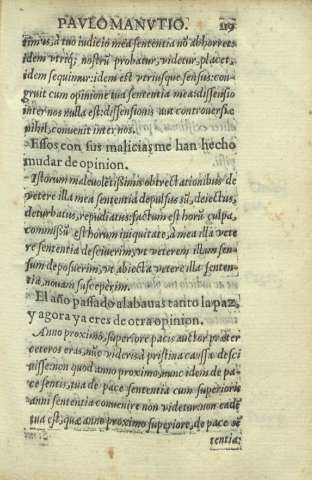 PAVLO MANVTIO. 219
simus, à tuo iudicio mea sententia nõ abhorret:
idem vtriq; nostrũ probatur, videtur, placet,
idem sequimur: idem est vtriusque sensus: con-
gruit cum opinione tua sententia mea: dissensio
inter nos nulla est: dissensionis aut controuersiæ
nihil, conuenit inter nos.
Essos con sus malicias me han hecho
mudar de opinion.
Istorum maleuolētissimis obtrectationibus de
vetere illa mea sententia depulsus sũ, deiectus,
deturbatus, repudiatus: factum est horũ culpa,
commissũ est horum iniquitate, à mea illa vete
re sententia desciuerim, vt veterem illum sen-
sum deposuerim, vt abiecta vetere illa senten-
tia, nouam susceperim.
El año passado alabauas tanto la paz,
y agora ya eres de otra opinion.
Anno proximo, superiore pacis auctor præter
ceteros eras, nũc videris à pristina caussa desci
uisse: non quod anno proximo, nunc idem de pa-
ce sentis, tua de pace sententia cum superioris
anni sententia conuenire non videtur: non eadē
tua est, quæ anno proximo superiore, de pace sē
tentia: